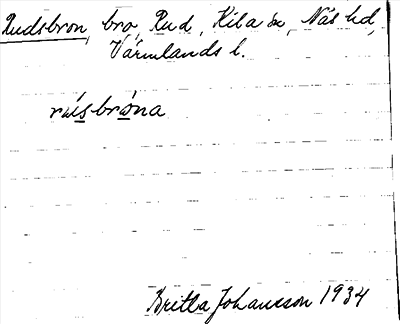 Rudsbron, bro, Rud, Kila sn, Näs hd,
Värmlands l.
rúsbròna
Britta Johansson 1934